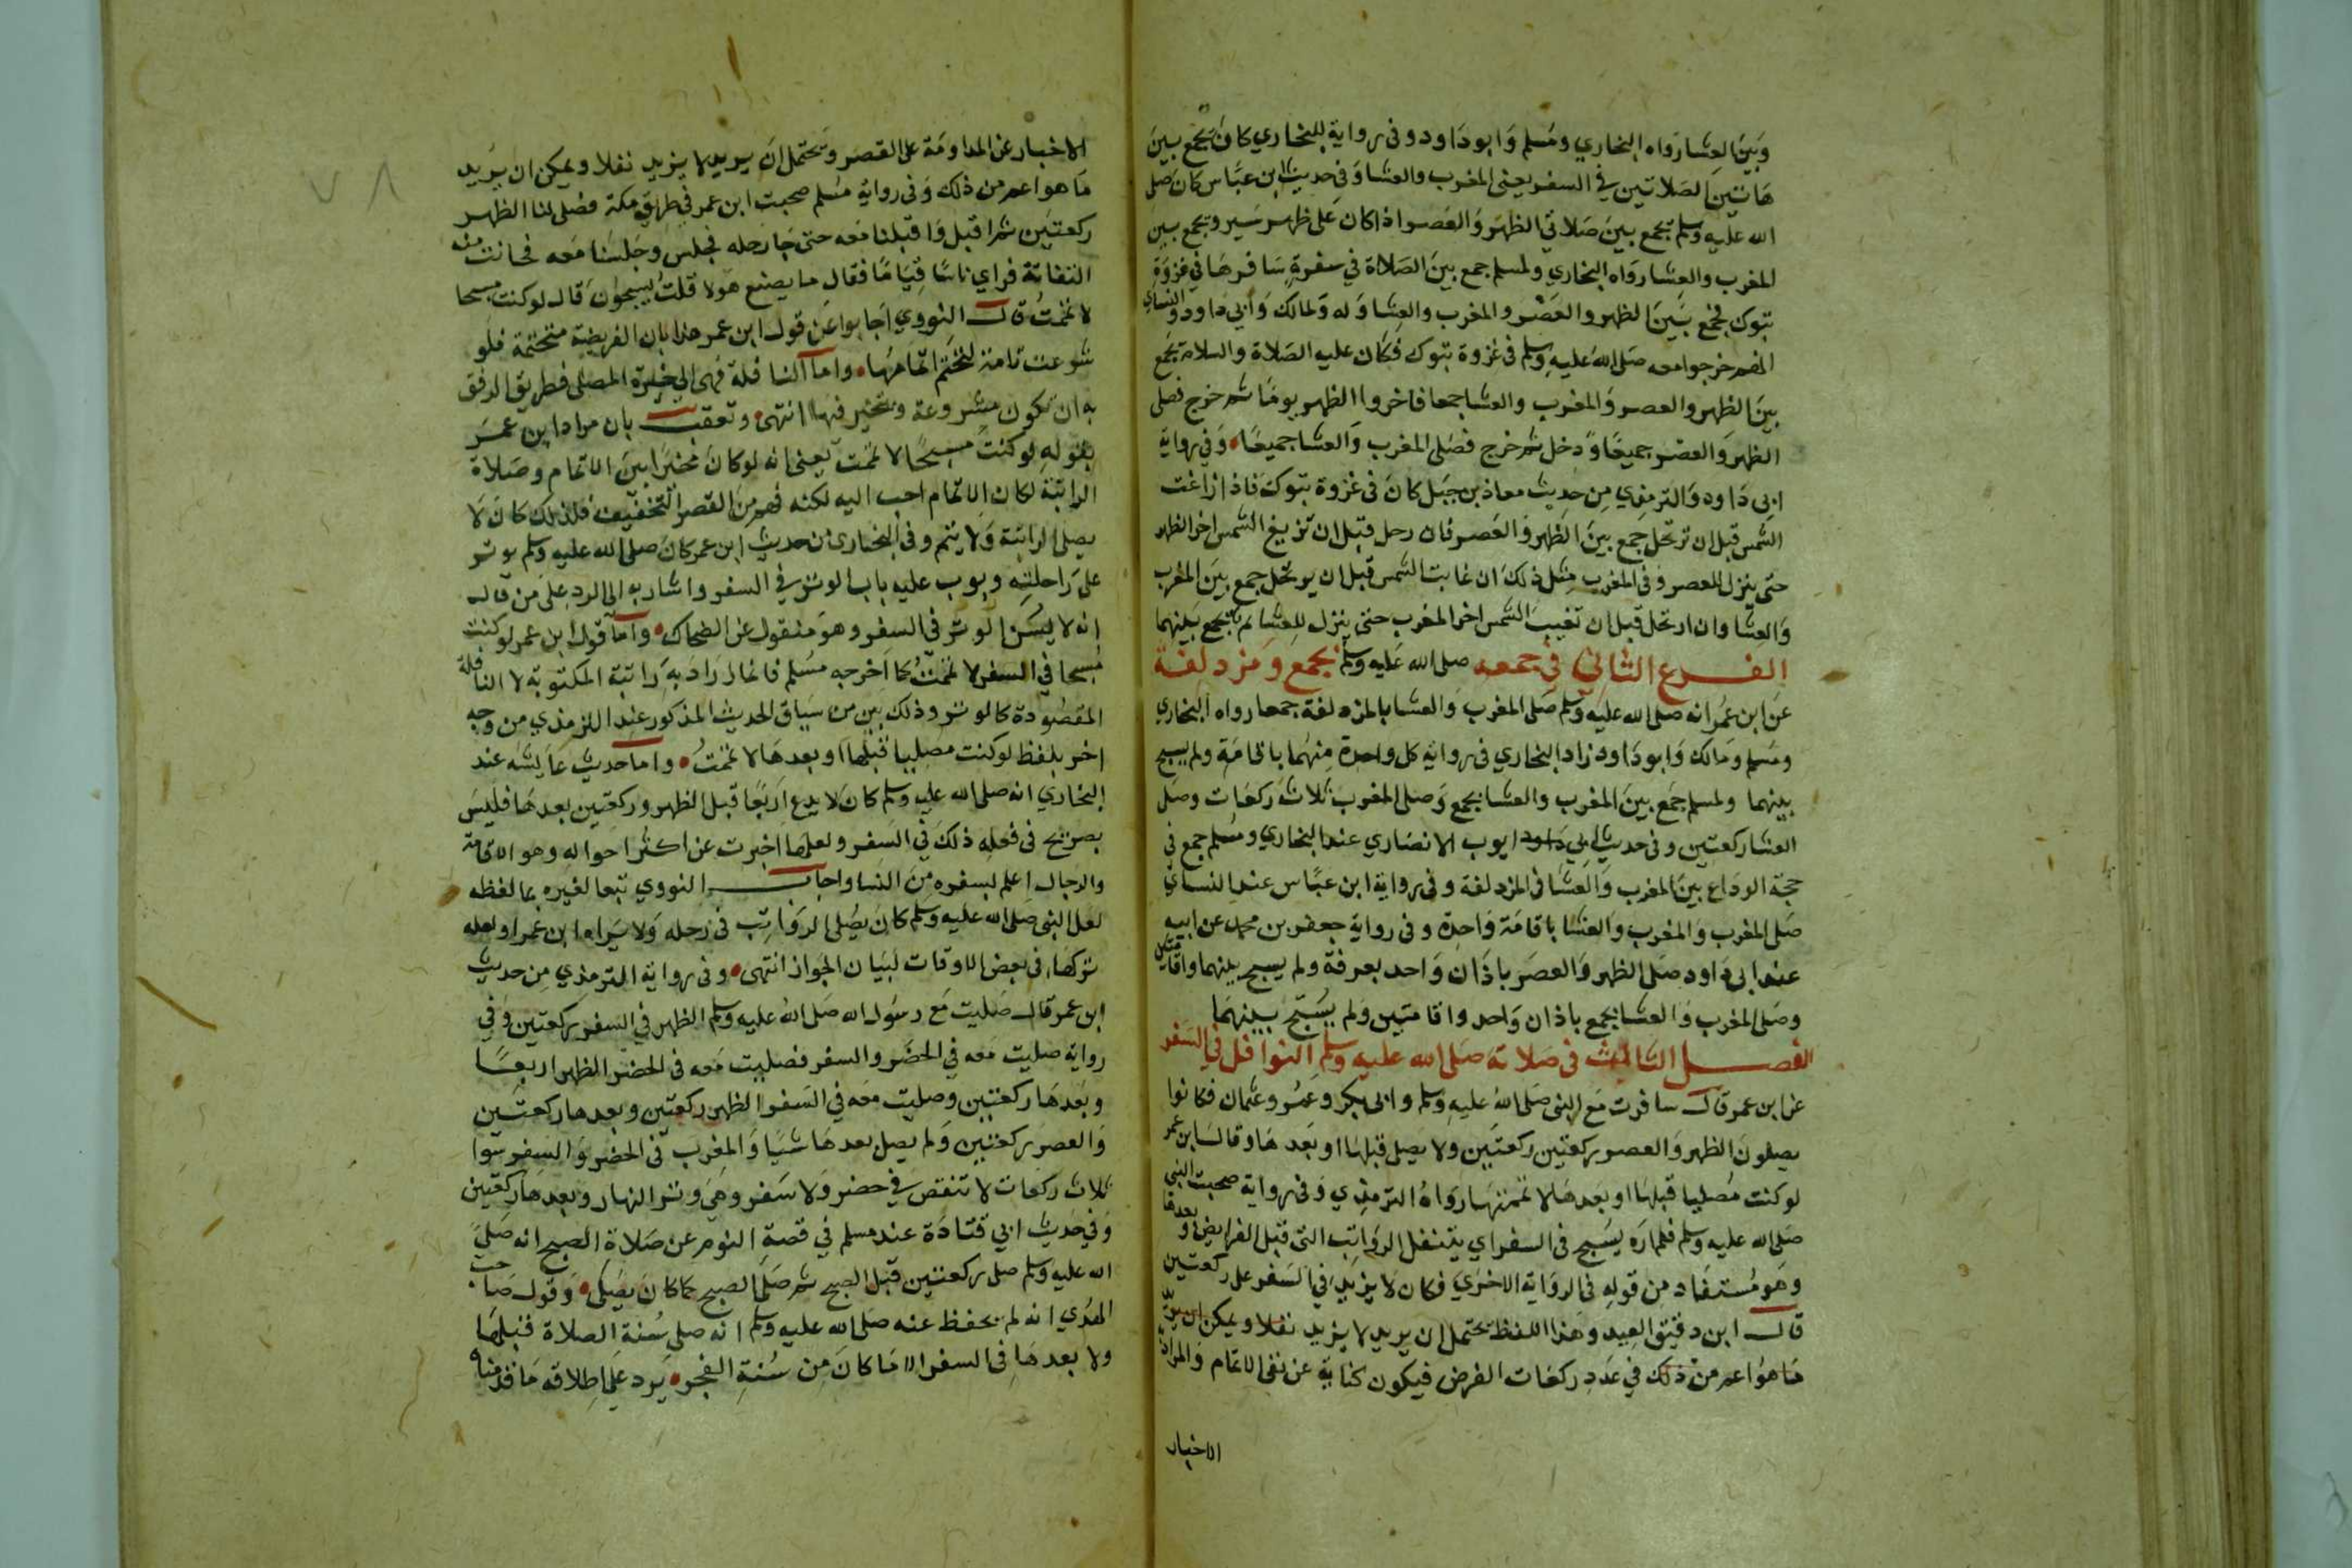 وبين العشا رواه البخاري ومسلم وابو داود وفي رواية للبخاري كان يجمع بين
هاتين الصلاتين في السفر يعني المغرب والعشا وفي حديث ابن عباس كان صلى
الله عليه وسلم يجمع بين صلاتي الظهر والعصر اذا كان على ظهر سير ويجمع بين
المغرب والعشا رواه البخاري ولمسلم جمع بين الصلاة في سفرة سافرها في غزوة
تبوك فجمع بين الظهر والعصر والمغرب والعشا وله ولمالك وابي داود والنساي
انهم خرجوا معه صلى الله عليه وسلم في غزوة تبوك فكان عليه الصلاة والسلام يجمع
بين الظهر والعصر والمغرب والعشا جمعا فاخر الظهر يوما ثم خرج فصلى
الظهر والعصر جميعا ثم دخل ثم خرج فصلى المغرب والعشا جميعا وفي رواية
ابي داود والترمذي من حديث معاذ بن جبل كان في غزوة تبوك فاذا زاغت
الشمس قبل ان ترتحل جمع بين الظهر والعصر فان رحل قبل ان تزيغ الشمس اخر الظهر
حتى ينزل للعصر وفي المغرب مثل ذلك ان غابت الشمس قبل ان يرتحل جمع بين المغرب
والعشا وان ارتحل قبل ان تغيب الشمس اخر المغرب حتى ينزل للعشا ثم يجمع بينهما
الفرع الثاني في جمعه صلى الله عليه وسلم بجمع ومزدلفة
عن ابن عمر انه صلى الله عليه وسلم صلى المغرب والعشا بالمزدلفة جمعا رواه البخاري
ومسلم ومالك وابو داود زاد البخاري في رواية كل واحدة منهما باقامة ولم يسبح
بينهما ولمسلم جمع بين المغرب والعشا بجمع وصلى المغرب ثلاث ركعات وصلى
العشا ركعتين وفي حديث ابي ايوب الانصاري عند البخاري ومسلم جمع في
حجة الوداع بين المغرب والعشا في المزدلفة وفي رواية ابن عباس عند النساي
صلى المغرب والمغرب والعشا باقامة واحدة وفي رواية جعفر بن محمد عن ابيه
عند ابي داود صلى الظهر والعصر باذان واحد بعرفة ولم يسبح بينهما واقامتين
وصلى المغرب والعشا بجمع باذان واحد واقامتين ولم يسبح بينهما
الفصل الثالث في صلاته صلى الله عليه وسلم النوافل في السفر
عن ابن عمر قال سافرت مع النبي صلى الله عليه وسلم وابي بكر وعمر وعثمان فكانوا
يصلون الظهر والعصر ركعتين ركعتين ولا يصل قبلها او بعدها وقال ابن عمر
لو كنت مصليا قبلها او بعدها لاتممتها رواه الترمذي وفي رواية صحبت النبي
صلى الله عليه وسلم فلم اره يسبح في السفر اي يتنفل الرواتب التي قبل الفرايض وبعدها
وهو مستفاد من قوله في الرواية الاخرى فكان لا يزيد في السفر على ركعتين
قال ابن دقيق العيد وهذا اللفظ يحتمل ان يريد لا يزيد نفلا ويمكن ان يريد
ما هو اعم من ذلك في عدد ركعات الفرض فيكون كناية عن نفي الاتمام والمراد
الاخبار
الاخبار عن المداومة على القصر ويحتمل ان يريد لا يزيد نفلا ويمكن ان يريد
ما هو اعم من ذلك وفي رواية مسلم صحبت ابن عمر في طريق مكة فصلى لنا الظهر
ركعتين ثم اقبل واقبلنا معه حتى جا رحله فجلس وجلسنا معه فحانت منه
التفاتة فراي ناسا قياما فقال ما يصنع هولا قلت يسبحون قال لو كنت مسبحا
لاتممت قال النووي اجابوا عن قول ابن عمر هذا بان الفريضة متحتمة فلو
شرعت تامة لتحتم اتمامها واما النافلة فهي الى خيرة المصلى فطريق الرفق
به ان تكون مشروعة ويتخير فيها انتهى وتعقب بان مراد ابن عمر
بقوله لو كنت مسبحا لاتممت يعني انه لو كان مخيرا بين الاتمام وصلاة
الراتبة لكان الاتمام احب اليه لكنه فهم من القصر التخفيف فلذلك كان لا
يصلى الراتبة ولا يتم وفي البخاري من حديث ابن عمر كان صلى الله عليه وسلم يوتر
على راحلته وبوب عليه باب الوتر في السفر واشار به الى الرد على من قال
انه لا يسن الوتر في السفر وهو منقول عن الضحاك واما قول ابن عمر لو كنت
مسبحا في السفر لاتممت كما اخرجه مسلم فانما اراد به راتبة المكتوبة لا النافلة
المقصودة كالوتر وذلك بين من سياق الحديث المذكور عند الترمذي من وجه
اخر بلفظ لو كنت مصليا قبلها او بعدها لاتممت واما حديث عايشه عند
البخاري انه صلى الله عليه وسلم كان لا يدع اربعا قبل الظهر وركعتين بعدها فليس
بصريح في فعله ذلك في السفر ولعلها اخبرت عن اكثر احواله وهو الاقامة
والرجال اعلم بسفره من النسا واجاب النووي تبعا لغيره بما لفظه
لعل النبي صلى الله عليه وسلم كان يصلى الرواتب في رحله ولا يراه ابن عمر او لعله
تركها في بعض الاوقات لبيان الجواز انتهى وفي رواية الترمذي من حديث
ابن عمر قال صليت مع رسول الله صلى الله عليه وسلم الظهر في السفر ركعتين وفي
رواية صليت معه في الحضر والسفر فصليت معه في الحضر الظهر اربعا
وبعدها ركعتين وصليت معه في السفر الظهر ركعتين وبعدها ركعتين
والعصر ركعتين ولم يصل بعدها شيا والمغرب في الحضر والسفر سوا
ثلاث ركعات لا تنقص في حضر ولا سفر وهي وتر النهار وبعدها ركعتين
وفي حديث ابي قتادة عند مسلم في قصة النوم عن صلاة الصبح انه صلى
الله عليه وسلم صلى ركعتين قبل الصبح ثم صلى الصبح كما كان يصلى وقول صاحب
الهدي انه لم يحفظ عنه صلى الله عليه وسلم انه صلى سنة الصلاة قبلها
ولا بعدها في السفر الا ما كان من سنة الفجر يرد على اطلاقه ما قدمناه